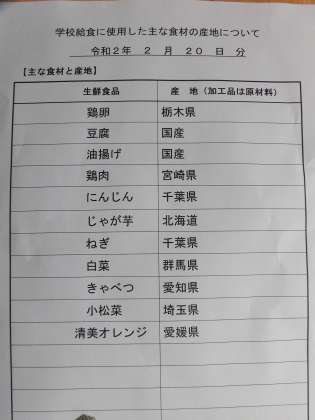 学校給食に使用した主な食材の産地について
令和２年 ２ 月 ２０ 日 分
【主な食材と産地】
生鮮食品 産 地（加工品は原材料）
鶏卵 栃木県
豆腐 国産
油揚げ 国産
鶏肉 宮崎県
にんじん 千葉県
じゃが芋 北海道
ねぎ 千葉県
白菜 群馬県
きゃべつ 愛知県
小松菜 埼玉県
清美オレンジ 愛媛県